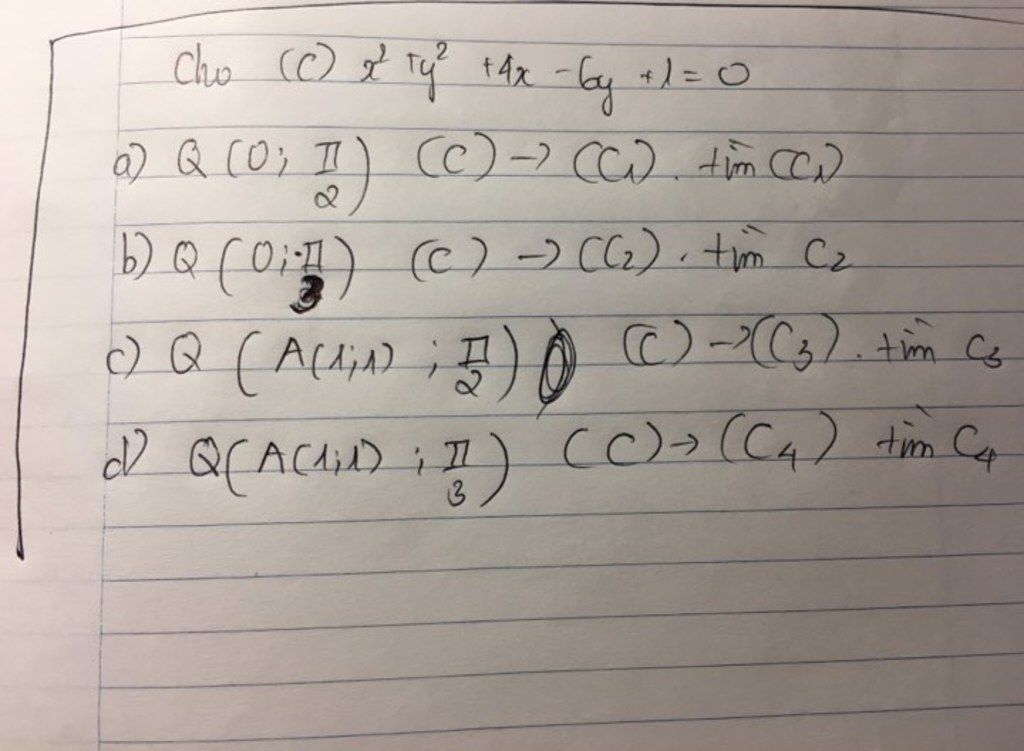 Cho (C) x² + y² + 4x - 6y + 1 = 0
a) Q (O; π/2) (C) → (C₁). tìm (C₁)
b) Q (O; -π/3) (C) → (C₂). tìm C₂
c) Q (A(1;1) ; π/2) (C) → (C₃). tìm C₃
d) Q(A(1;1) ; π/3) (C) → (C₄) tìm C₄